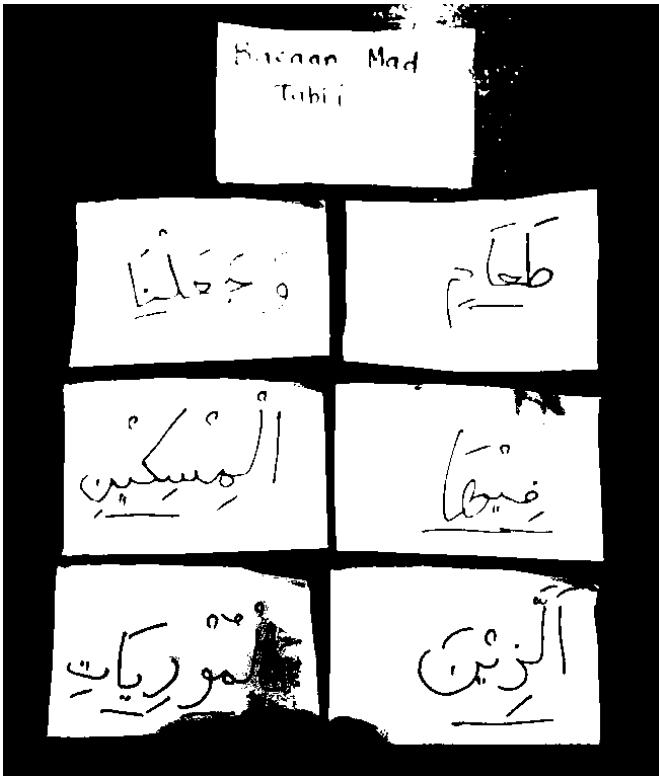 Bacaan Mad
Tabi'i
طَعَامِ
وَجَعَلْنَا
فِيْهَا
الْمِسْكِيْنِ
اَلَّذِيْنَ